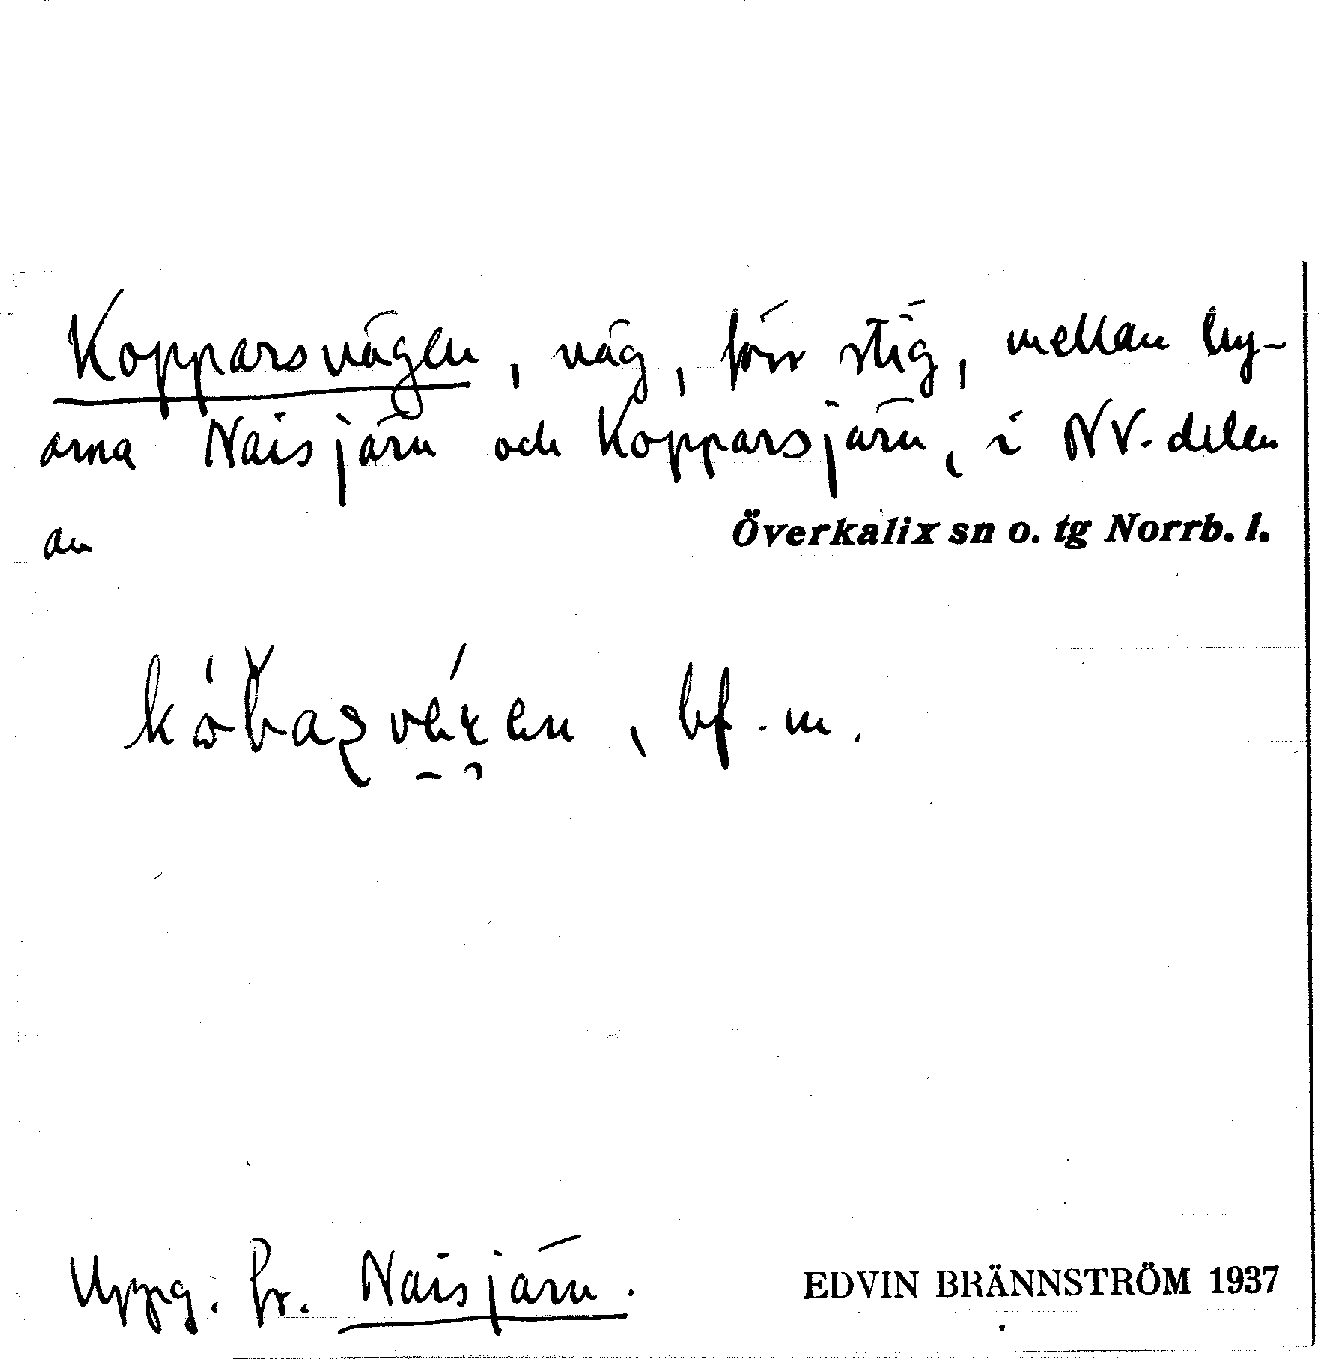 Kopparsvägen, väg, förr stig, mellan by-
arna Naisjärv och Kopparsjärv, i NV. delen
av Överkalix sn o. tg Norrb. l.
, bf. m.
Uppg. fr. Naisjärv.
EDVIN BRÄNNSTRÖM 1937